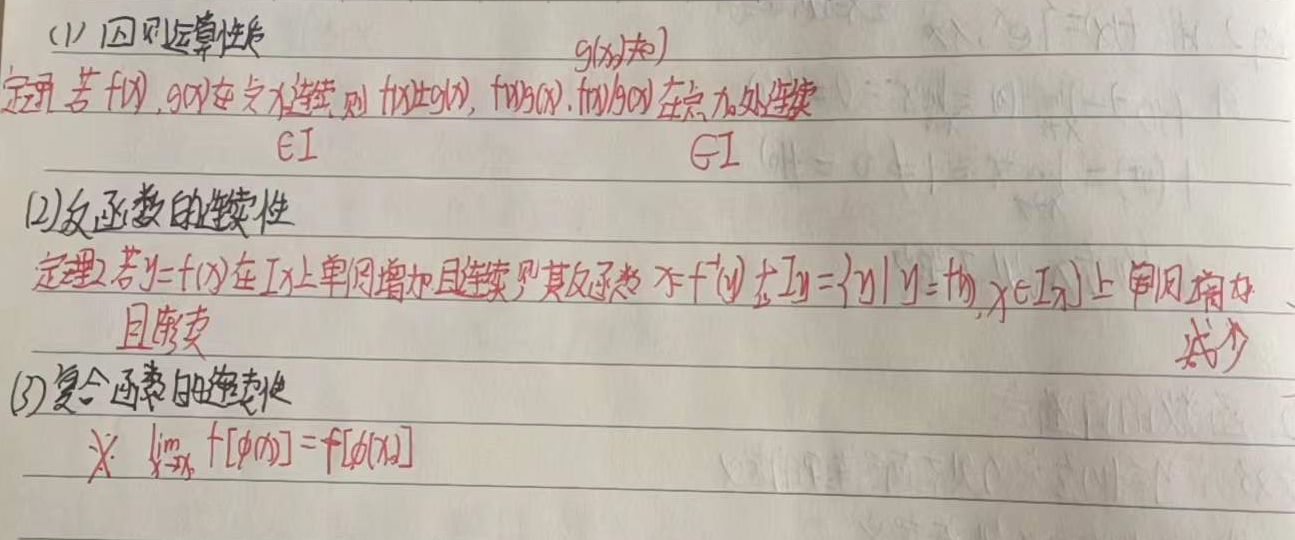 (1) 四则运算性质
g(x₀)≠0)
定理1 若 f(x), g(x)在点x₀连续,则 f(x)±g(x), f(x)g(x), f(x)/g(x) 在点x₀处连续
∈I ∈I
(2)反函数的连续性
定理2.若y=f(x)在Ix上单调增加且连续,则其反函数 x=f⁻¹(y)在Iy={y|y=f(x),x∈Ix}上 单调增加
且连续 减少
(3)复合函数的连续性
※ lim x→x₀ f[φ(x)]=f[φ(x₀)]